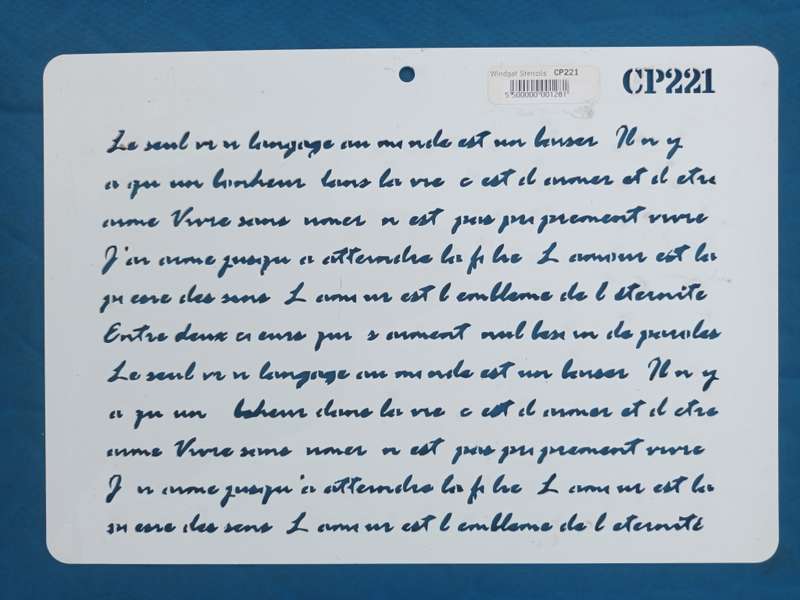 Windget Stencils CP221
5 500000 001281
CP221
Le seul vrai langage au monde est un baiser Il n y
a qu un bonheur dans la vie c est d aimer et d etre
aime Vivre sans aimer n est pas proprement vivre
J'ai aime jusqu a atteindre la folie L amour est la
poesie des sens L amour est l embleme de l éternite
Entre deux coeurs qui s aiment nul besoin de paroles
Le seul vrai langage au monde est un baiser Il n y
a qu un boheur dans la vie c est d aimer et d etre
aime Vivre sans aimer n est pas proprement vivre
J ai aime jusqu'a atteindre la folie L amour est la
poesie des sens L amour est l embleme de l eternité